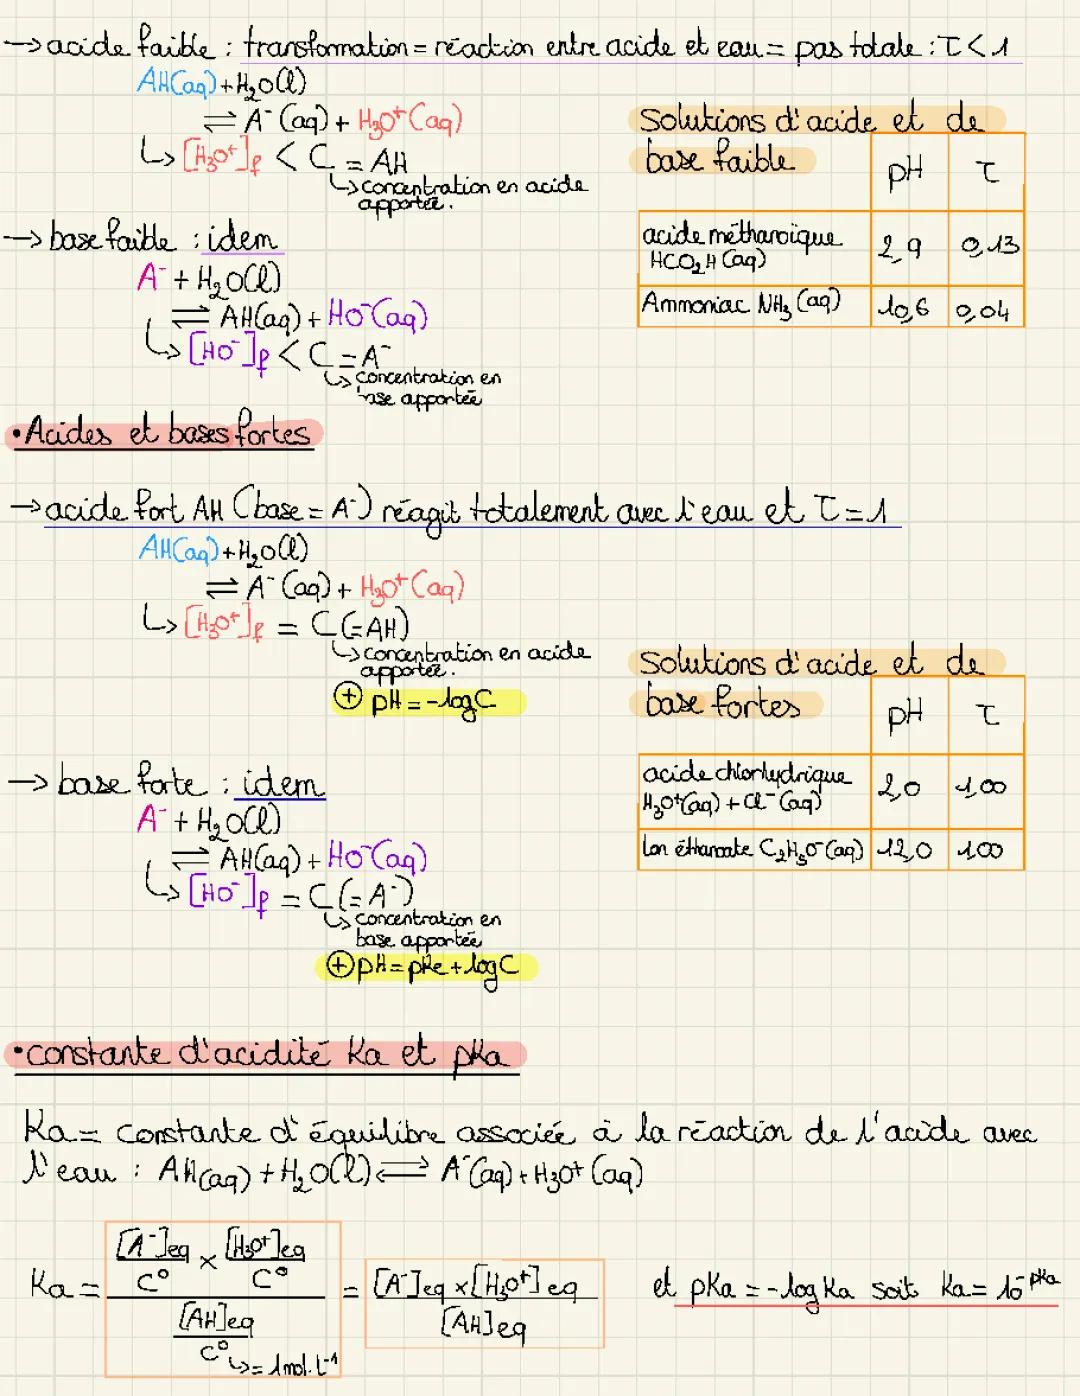 → acide faible : transformation = réaction entre acide et eau = pas totale : τ < 1
AH(aq) + H₂O(l)
⇌ A⁻(aq) + H₃O⁺(aq)
↳ [H₃O⁺]f < C = AH
↳ concentration en acide
apportée.
Solutions d'acide et de
base faible
pH τ
acide méthanoïque 2,9 0,13
HCO₂H (aq)
Ammoniac NH₃ (aq) 10,6 0,04
→ base faible : idem
A⁻ + H₂O(l)
⇌ AH(aq) + HO⁻(aq)
↳ [HO⁻]f < C = A⁻
↳ concentration en
base apportée
• Acides et bases fortes
→ acide fort AH (base = A⁻) réagit totalement avec l'eau et τ = 1
AH(aq) + H₂O(l)
⇌ A⁻(aq) + H₃O⁺(aq)
↳ [H₃O⁺]f = C (=AH)
↳ concentration en acide
apportée.
⊕ pH = -log C
Solutions d'acide et de
base fortes
pH τ
acide chlorhydrique 2,0 1,00
H₃O⁺(aq) + Cl⁻(aq)
Ion éthanoate C₂H₅O⁻(aq) 12,0 1,00
→ base forte : idem
A⁻ + H₂O(l)
⇌ AH(aq) + HO⁻(aq)
↳ [HO⁻]f = C (= A⁻)
↳ concentration en
base apportée
⊕ pH = pKe + log C
• constante d'acidité Ka et pKa
Ka = constante d'équilibre associée à la réaction de l'acide avec
l'eau : AH(aq) + H₂O(l) ⇌ A⁻(aq) + H₃O⁺(aq)
[A⁻]eq × [H₃O⁺]eq
C° C°
Ka = = [A⁻]eq × [H₃O⁺]eq et pKa = -log Ka soit Ka = 10⁻ᵖᴷᵃ
[AH]eq [AH]eq
C° ↳ = 1 mol.L⁻¹